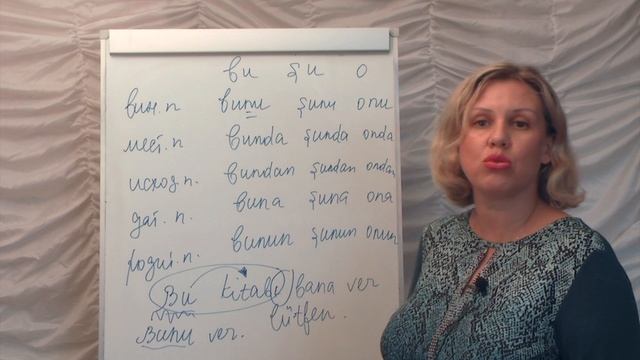 bu şu o
вин. п bunu şunu onu
мест. п bunda şunda onda
исход. п. bundan şundan ondan
дат. п. buna şuna ona
родит. п. bunun şunun onun
Bu kitabı bana ver
lütfen.
Bunu ver.